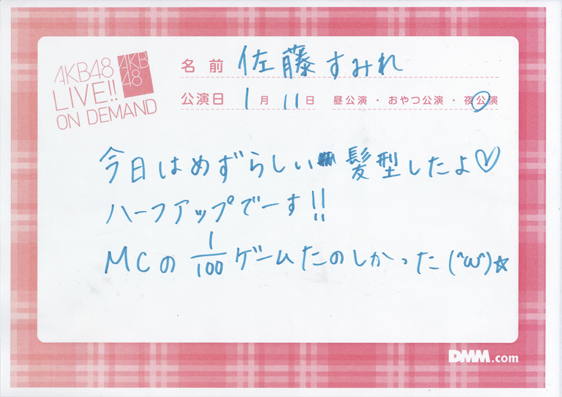 AKB48
LIVE!!
ON DEMAND
AKB
48
名前 佐藤すみれ
公演日 1月11日 昼公演・おやつ公演・夜公演
今日はめずらしい髪型したよ♡
ハーフアップでーす!!
MCの 1/100 ゲームたのしかった(^ω^)☆
DMM.com